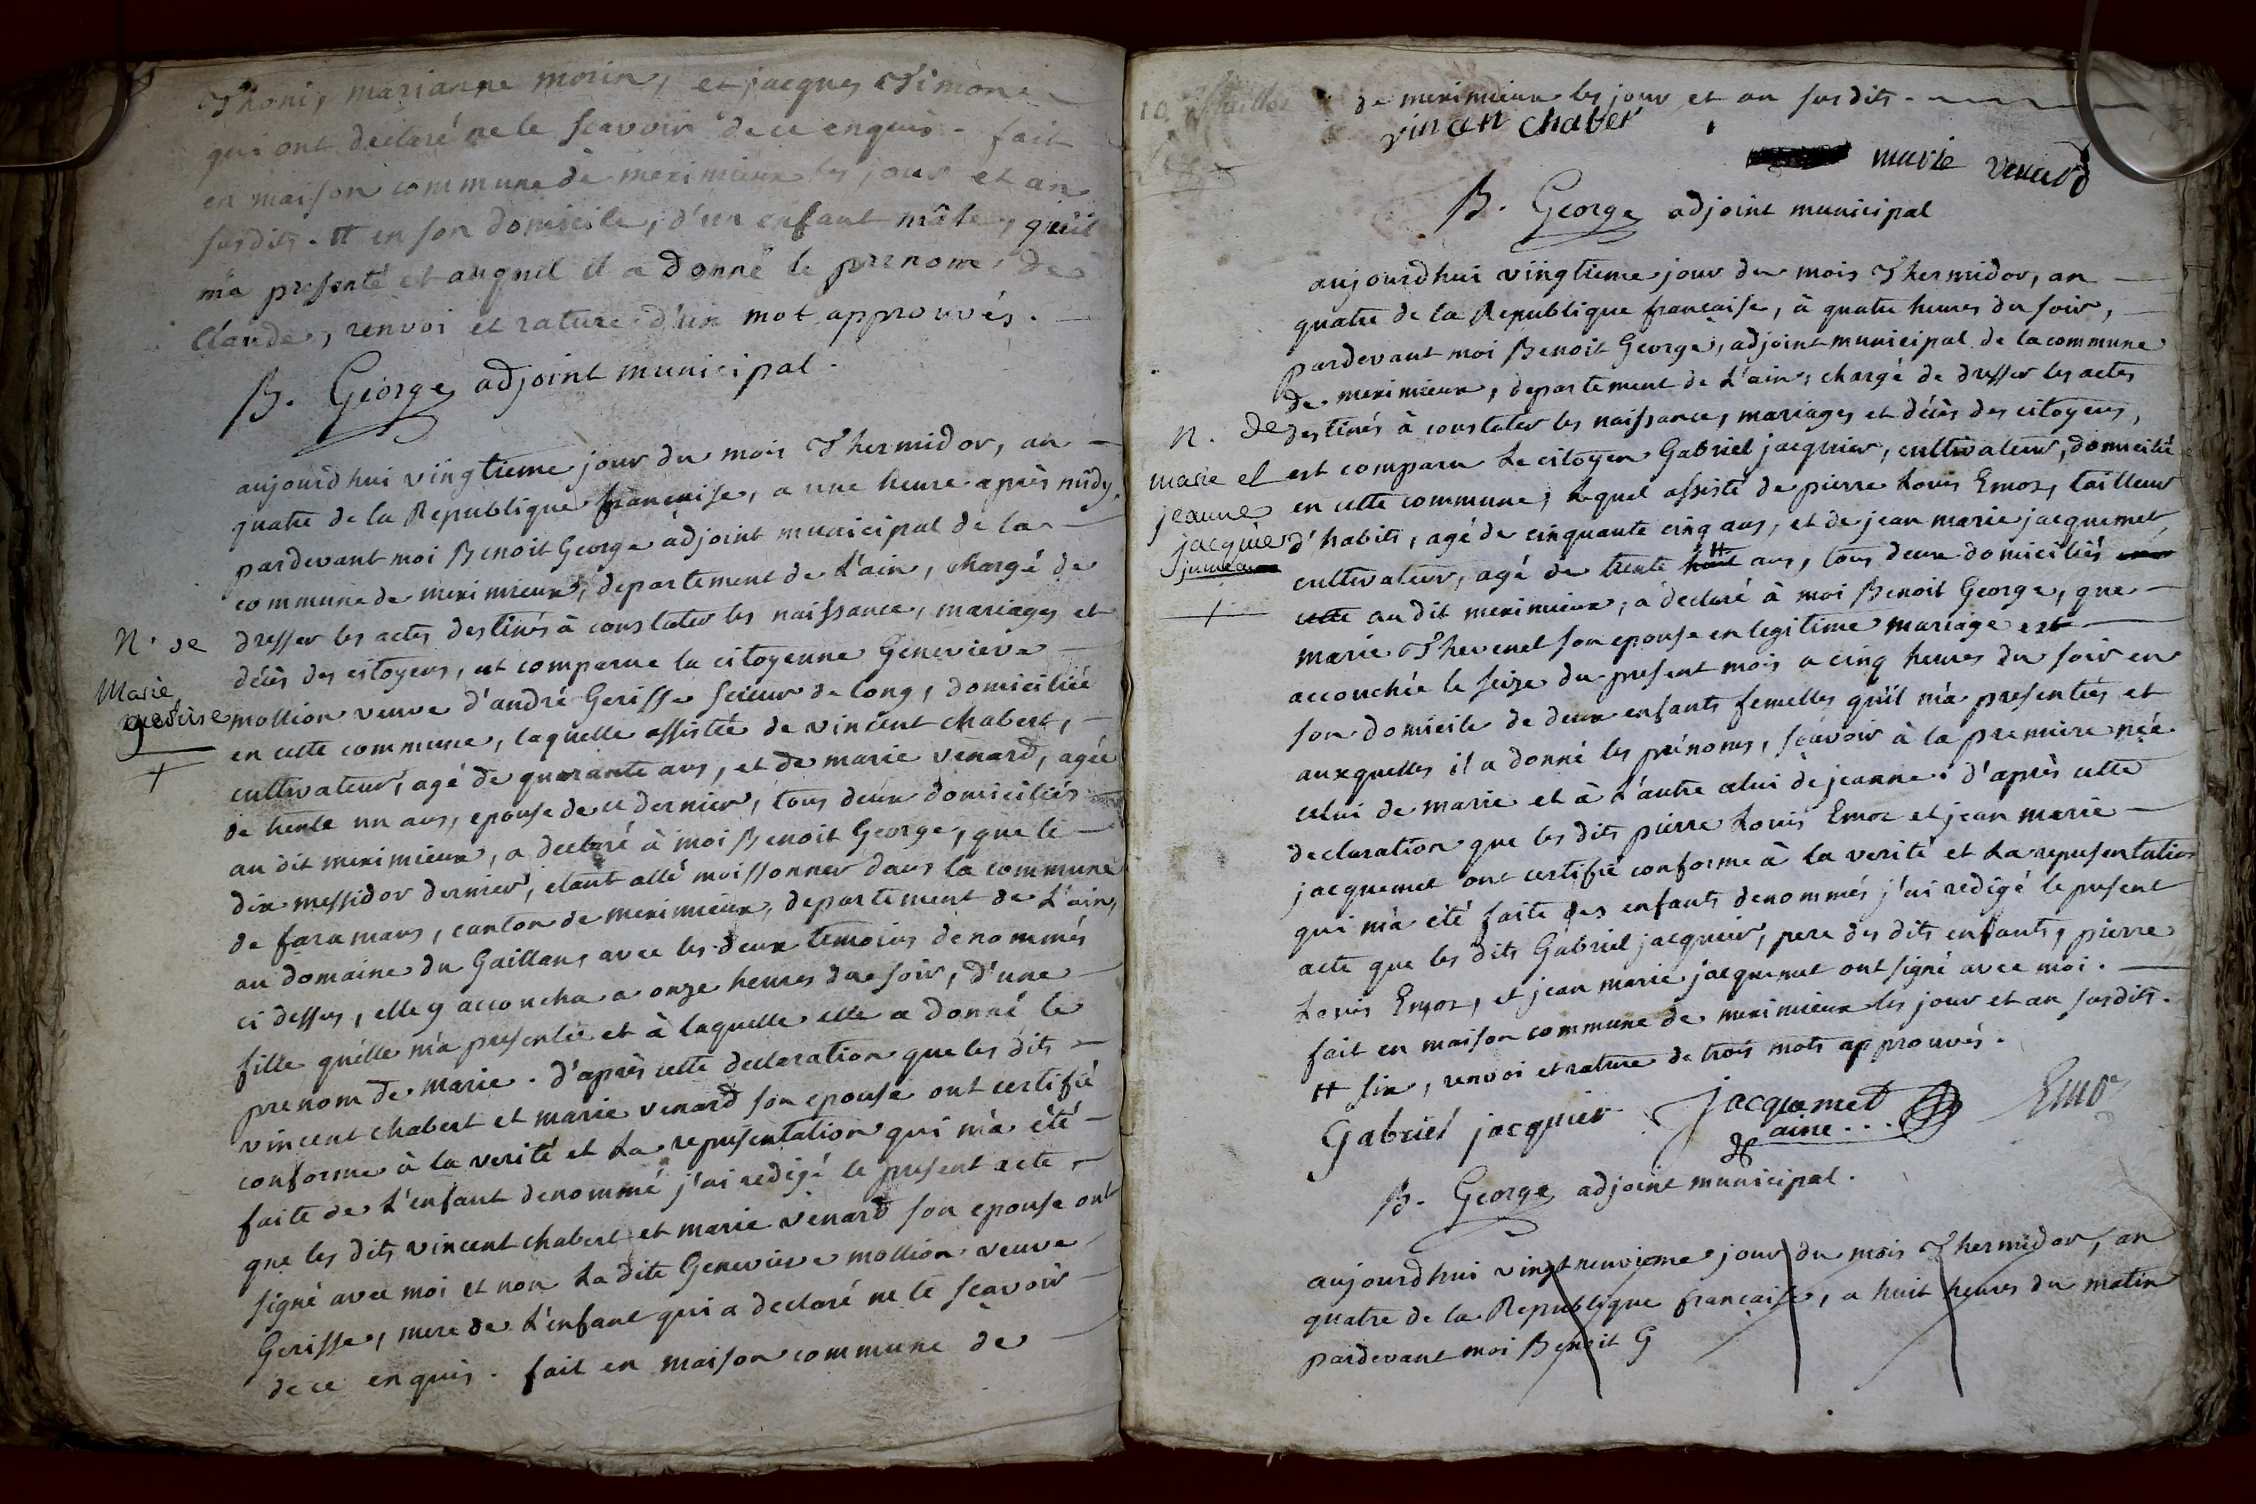 Thoni, marianne morin, et jacques Simon
qui ont declaré ne le scavoir de ce enquis. fait
en maison commune de meximieux les jour et an
susdits. # en son domicile, d'un enfant mâle, qu'il
m'a presenté et auquel il a donné le prenom de
Claude, renvoi et rature d'un mot approuvés.
B. George adjoint municipal.
aujourd'hui vingtieme jour du mois Thermidor, an
quatre de la Republique française, a une heure après midy
pardevant moi Benoit George adjoint municipal de la
commune de meximieux, departement de L'ain, chargé de
N. de dresser les actes destinés à constater les naissance, mariages et
décès des citoyens, est comparue la citoyenne Genevieve
Marie
gerisse mollion veuve d'andré Gerisse scieur de long, domiciliée
en cette commune, laquelle assistée de vincent chabert,
cultivateur, agé de quarante ans, et de marie venard, agée
de trente un ans, epouse de ce dernier, tous deux domiciliés
au dit meximieux, a declaré à moi Benoit George, que le
dix messidor dernier, etant allé moissonner dans la commune
de faramans, canton de meximieux, departement de L'ain,
au domaine du Gaillan, avec les deux temoins denommés
ci dessus, elle y accoucha a onze heures du soir, d'une
fille qu'elle m'a presentée et à laquelle elle a donné le
prenom de Marie. d'après cette declaration que les dits
vincent chabert et marie venard son epouse ont certifié
conforme à la verité et La representation qui m'a été
faite de L'enfant denommé j'ai redigé le present acte
que les dits vincent chabert et marie venard son epouse ont
signé avec moi et non La dite Genevieve mollion veuve
Gerisse, mere de L'enfant qui a declaré ne le scavoir
de ce enquis. fait en maison commune de
de meximieux les jour et an susdits.
vincen chaber
marie venard
B. George adjoint municipal
aujourdhui vingtieme jour du mois Thermidor, an
quatre de la Republique française, à quatre heures du soir,
pardevant moi Benoit George, adjoint municipal de la commune
de meximieux, departement de L'ain, chargé de dresser les actes
N. de destinés à constater les naissance, mariages et décès des citoyens,
marie et est comparu Le citoyen Gabriel jacquier, cultivateur, domicilié
jeanne en cette commune, Lequel assisté de pierre Louis Emoz, tailleur
jacquier d'habits, agé de cinquante cinq ans, et de jean marie jacquemet,
jumeaux cultivateur, agé de trente huit # ans, tous deux domiciliés
cette au dit meximieux, a declaré à moi Benoit George, que
marie Thevenet son epouse en legitime mariage est
accouchée le seize du present mois a cinq heures du soir en
son domicile de deux enfants femelles qu'il m'a presentées et
auxquelles il a donné les prénoms, sçavoir à la premiere née
celui de marie et à L'autre celui de jeanne. d'après cette
declaration que les dits pierre Louis Emoz et jean marie
jacquemet ont certifié conforme à la verité et La representation
qui m'a été faite des enfants denommés j'ai redigé le present
acte que les dits Gabriel jacquier, pere des dits enfants, pierre
Louis Emoz, et jean marie jacquemet ont signé avec moi.
fait en maison commune de meximieux les jour et an susdits.
# six, renvoi et rature de trois mots approuvés.
Gabriel jacquier Jacquemet Emoz
ainé...
B. George adjoint municipal.
aujourdhui vingt neuvieme jour du mois Thermidor, an
quatre de la Republique française, a huit heures du matin
pardevant moi Benoit G